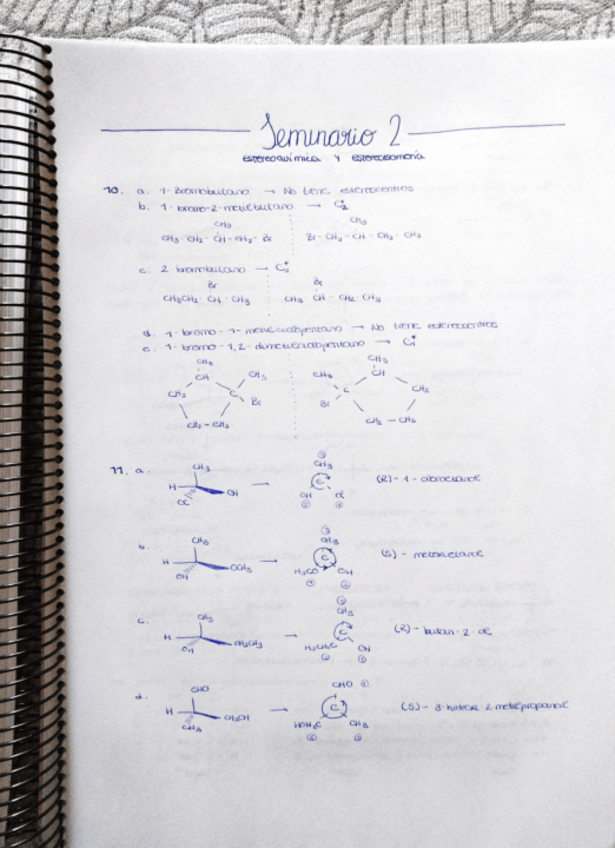 Seminario 2
estereoquímica y estereoisomería
10. a. 1-Bromobutano → No tiene estereocentros
b. 1-bromo-2-metilbutano → C2*
CH3 CH3
CH3-CH2-CH-CH2-Br Br-CH2-CH-CH2-CH3
c. 2 bromobutano → C2*
Br Br
CH3CH2-CH-CH3 CH3 CH-CH2-CH3
d. 1-bromo-1-metilciclopentano → No tiene estereocentros
e. 1-bromo-1,2-dimetilciclopentano → C1*
CH3 CH3
CH CH3 CH3 CH
CH2 C C CH2
Br Br
CH2-CH2 CH2-CH2
11. a.
CH3 CH3
H OH → C (R)-1-cloroetanol
Cl OH Cl
b.
CH3 CH3
H OCH3 → C (S)-metoxietanol
OH H3CO OH
c.
CH3 CH3
H CH2CH3 → C (R)-butan-2-ol
OH H3CH2C OH
d.
CHO CHO
H CH2OH → C (S)-3-hidroxi 2-metilpropanal
CH3 HOH2C CH3